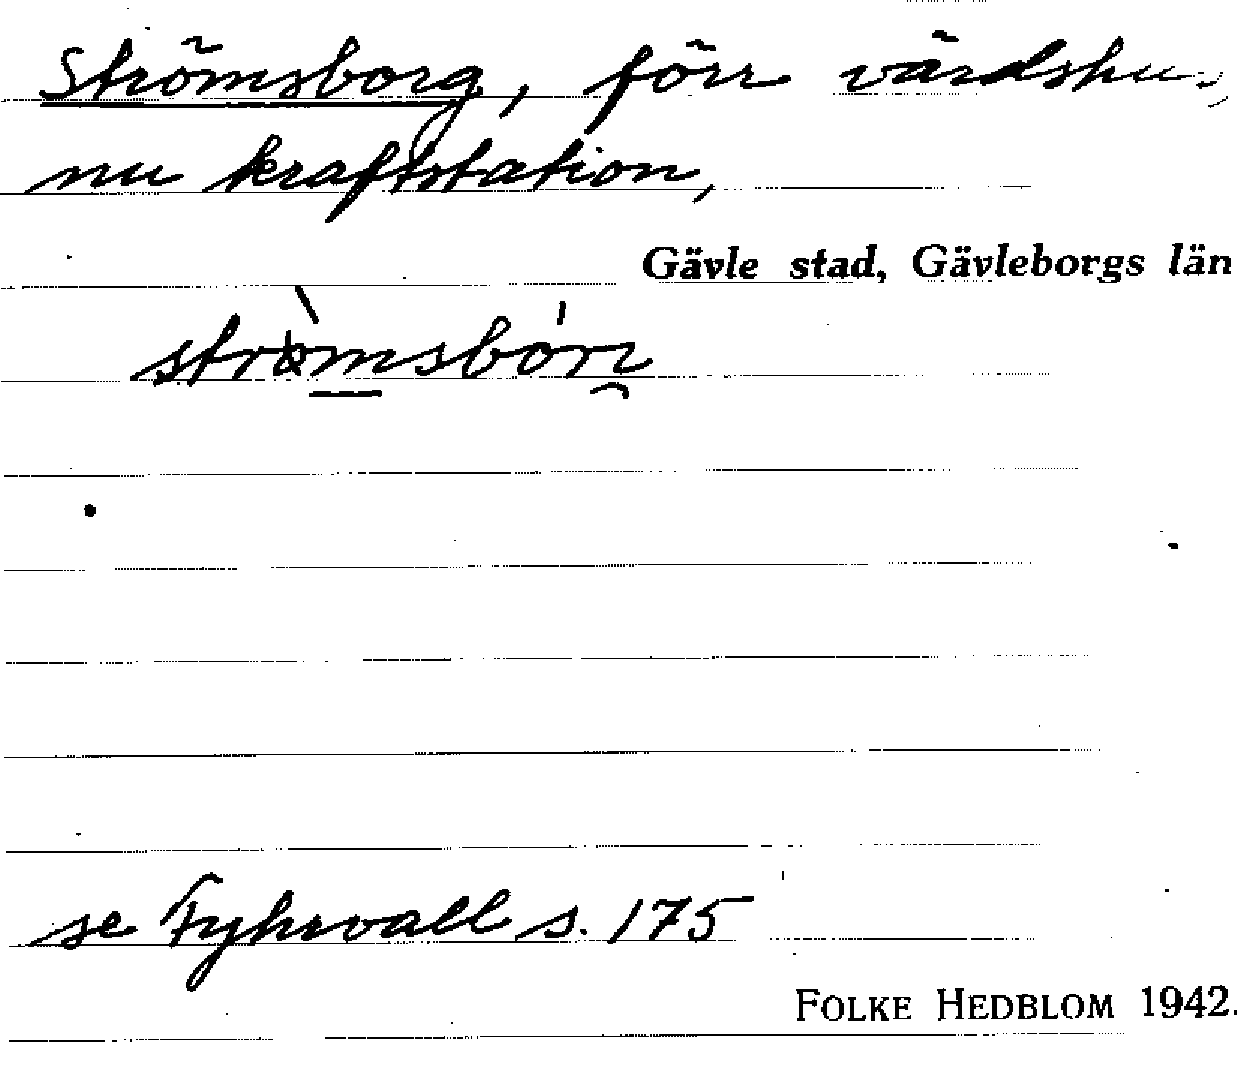 Strömsborg, förr värdshus,
nu kraftstation,
Gävle stad, Gävleborgs län
se Fyhrvall s. 175
FOLKE HEDBLOM 1942.